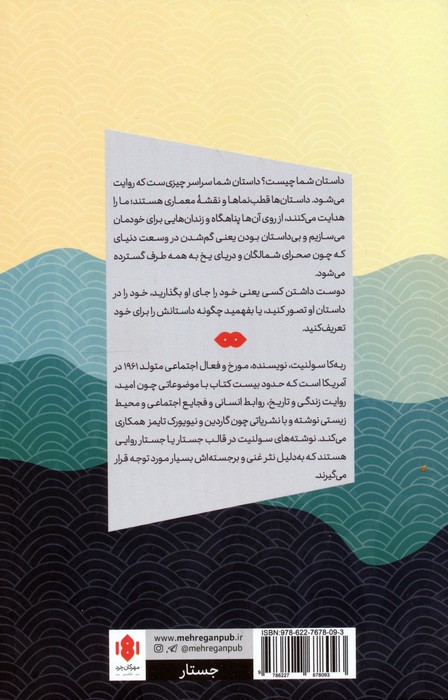 داستان شما چیست؟ داستان شما سراسر چیزی‌ست که روایت
می‌شود. داستان‌ها قطب‌نماها و نقشهٔ معماری هستند؛ ما را
هدایت می‌کنند، از روی آن‌ها پناهگاه و زندان‌هایی برای خودمان
می‌سازیم و بی‌داستان بودن یعنی گم‌شدن در وسعت دنیای
که چون صحرای شمالگان و دریای یخ به همه طرف گسترده
می‌شود.
دوست داشتن کسی یعنی خود را جای او بگذارید، خود را در
داستان او تصور کنید، یا بفهمید چگونه داستانش را برای خود
تعریف کنید.
ربه‌کا سولنیت، نویسنده، مورخ و فعال اجتماعی متولد ۱۹۶۱ در
آمریکا است که حدود بیست کتاب با موضوعاتی چون امید،
روایت زندگی و تاریخ، روابط انسانی و فجایع اجتماعی و محیط
زیستی نوشته و با نشریاتی چون گاردین و نیویورک تایمز همکاری
می‌کند. نوشته‌های سولنیت در قالب جستار یا جستار روایی
هستند که به‌دلیل نثر غنی و برجسته‌اش بسیار مورد توجه قرار
می‌گیرند.
مهرگان خرد
www.mehreganpub.ir
@mehreganpub
جستار
ISBN: 978-622-7678-09-3
9 786227 678093